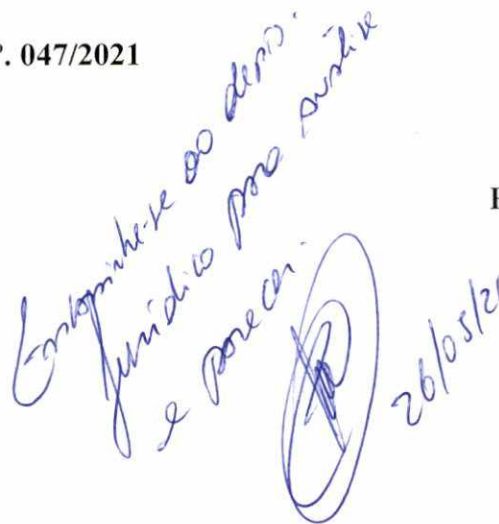 º. 047/2021
Encaminhe-se ao depto.
Jurídico para análise
e parecer.
26/05/2